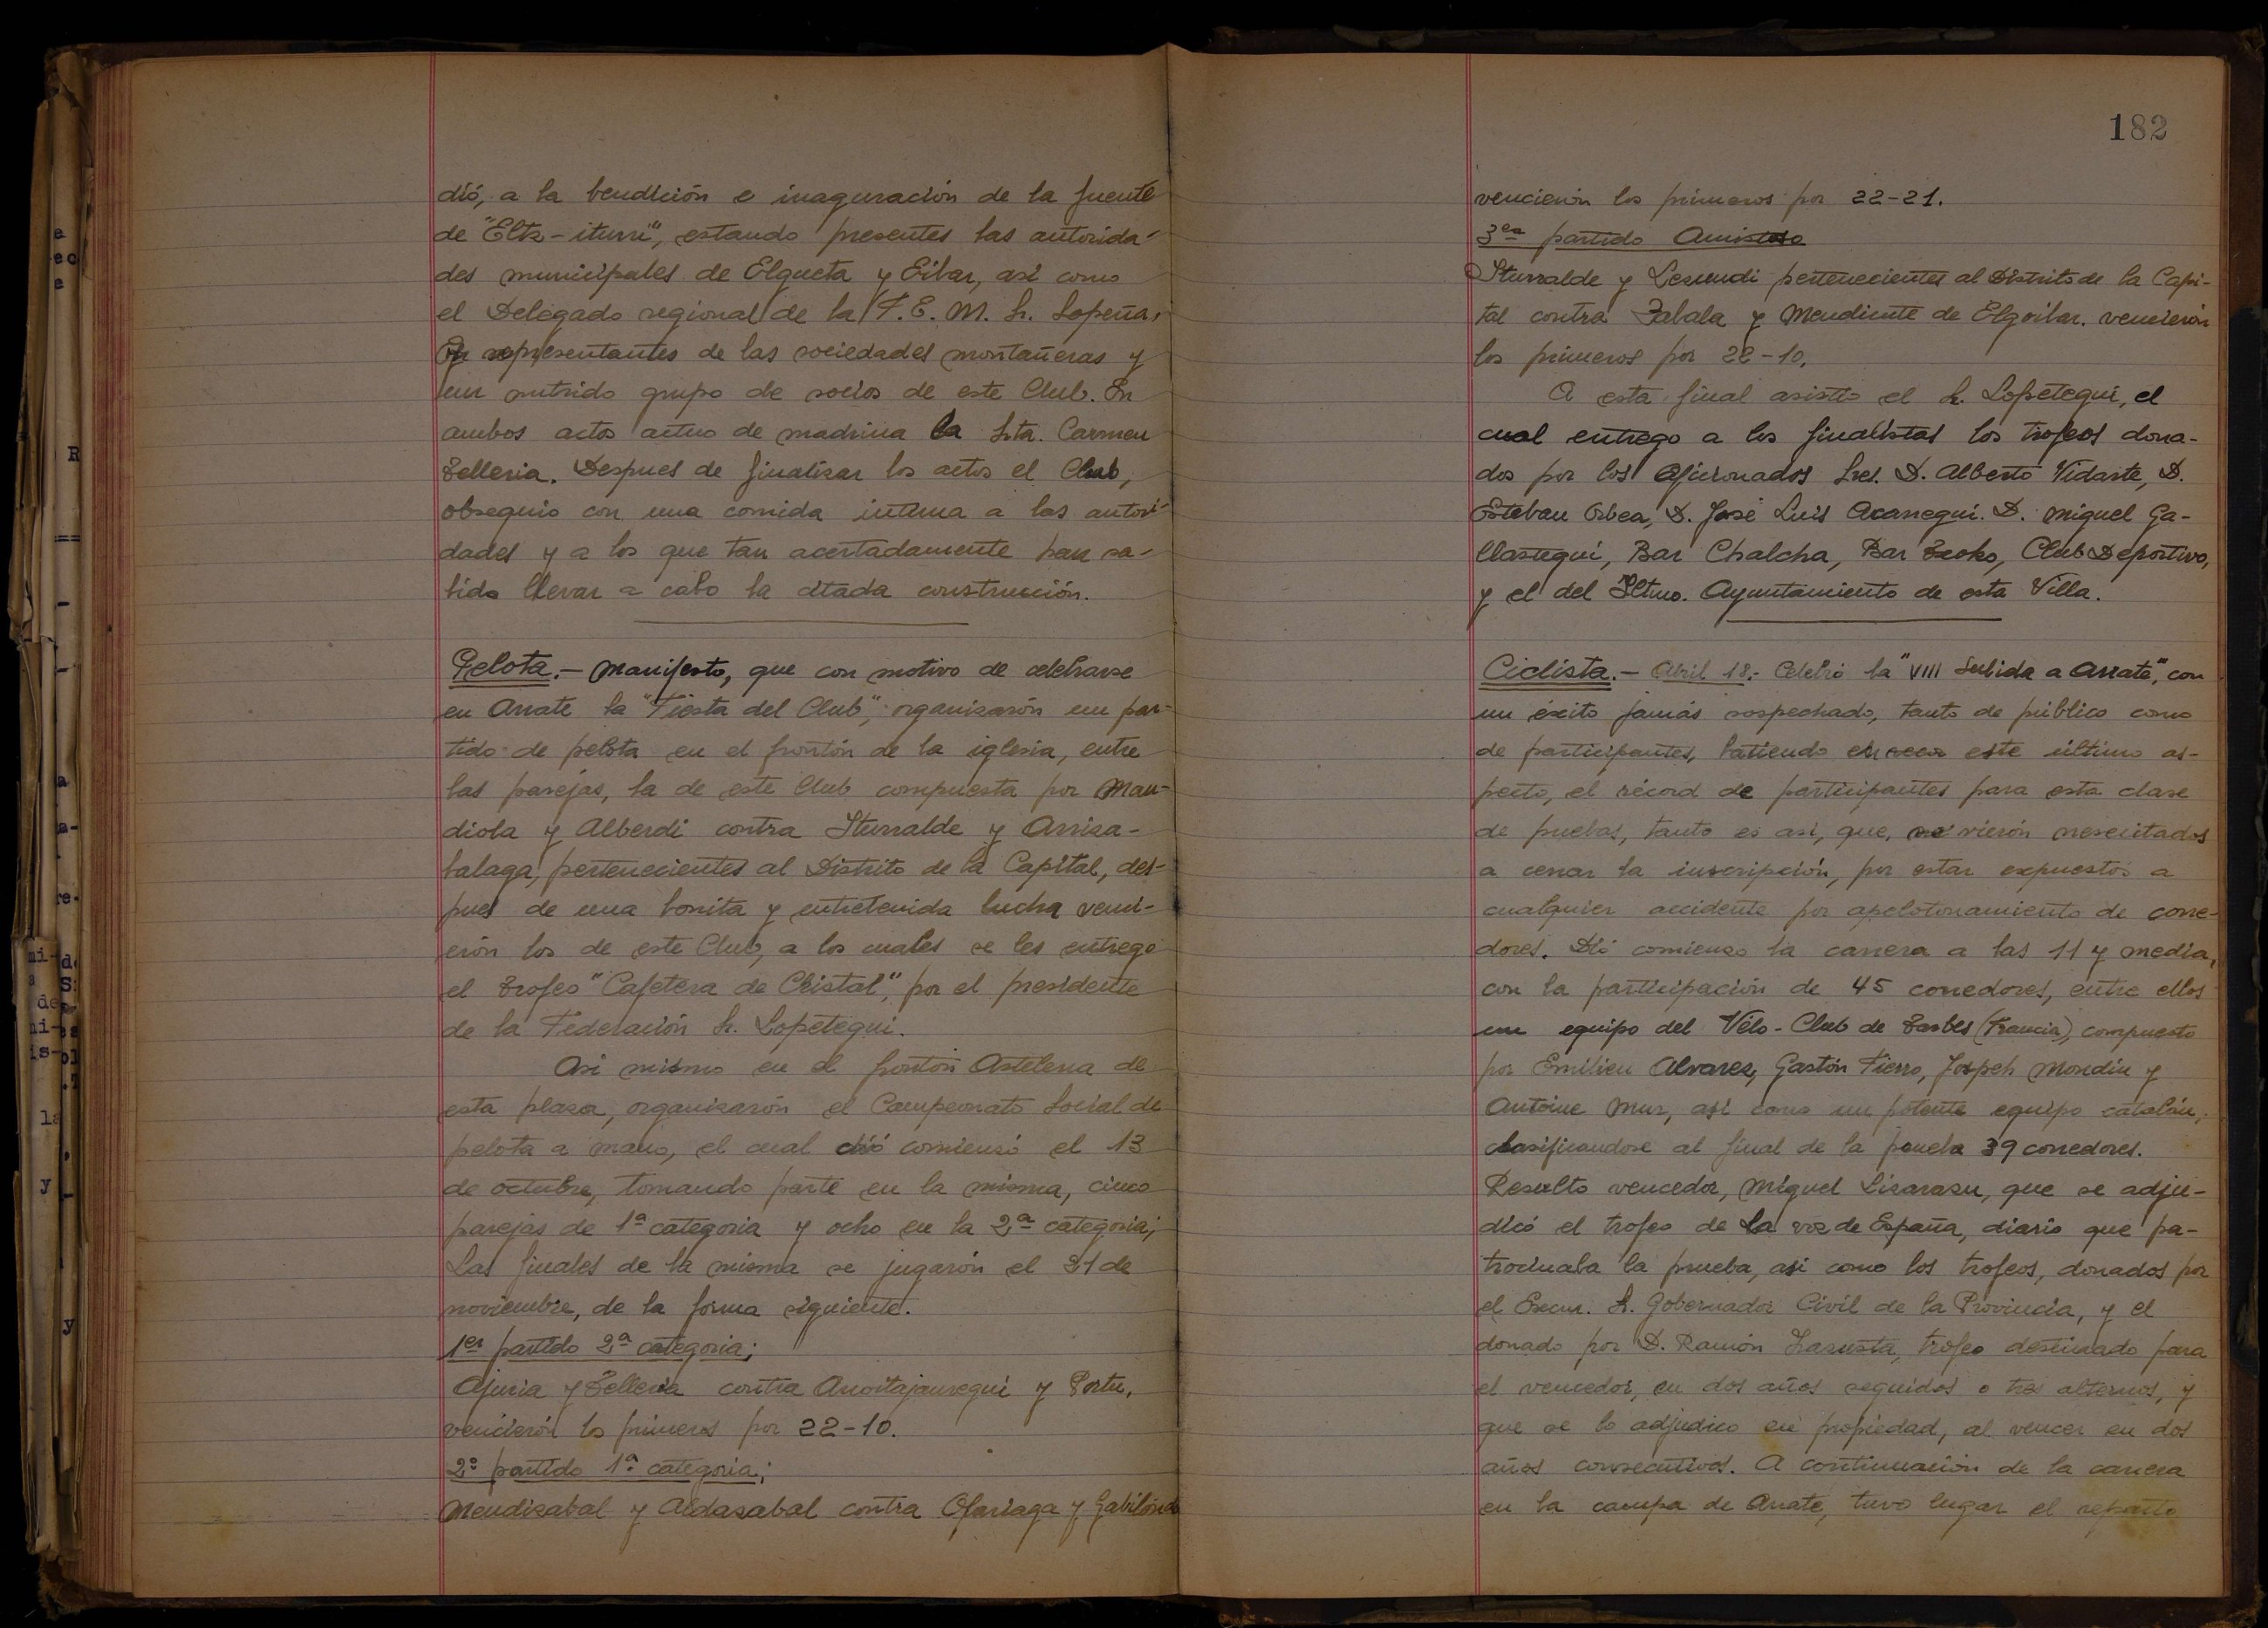 dió, a la bendición e inaguración de la fuente
de "Eltz-iturri", estando presentes las autorida-
des municipales de Elgueta y Eibar, asi como
el Delegado regional de la F.E.M. Sr. Lopeña,
representantes de las sociedades montañeras y
un nutrido grupo de socios de este Club. En
ambos actos actuo de madrina la Srta. Carmen
Telleria. Despues de finalizar los actos el Club,
obsequio con una comida intima a las autori-
dades y a los que tan acertadamente han sa-
bido llevar a cabo la citada construcción.
Pelota.- Manifesto, que con motivo de celebrarse
en Arrate la "Fiesta del Club", organizarón un par-
tido de pelota en el frontón de la iglesia, entre
las parejas, la de este Club compuesta por Man-
diola y Alberdi contra Iturralde y Arriza-
balaga, pertenecientes al Distrito de la Capital, des-
pues de una bonita y entretenida lucha venci-
erón los de este Club, a los cuales se les entrego
el Trofeo "Cafetera de Cristal", por el presidente
de la Federación Sr. Lopetegui.
Asi mismo en el frontón Astelena de
esta plaza, organizarón el Campeonato Social de
pelota a mano, el cual dió comienzó el 13
de octubre, tomando parte en la misma, cinco
parejas de 1ª categoria y ocho en la 2ª categoria;
Las finales de la misma se jugarón el 31 de
noviembre, de la forma siguiente.
1er partido 2ª categoria;
Ajuria y Telleria contra Anoitajauregui y Portu,
vencierón los primeros por 22-10.
2º partido 1ª categoria;
Mendizabal y Aldazabal contra Ofariaga y Gabilondo
182
vencierón los primeros por 22-21.
3er partido Amistoso
Iturralde y Lesundi pertenecientes al Distrito de la Capi-
tal contra Zabala y Mendiente de Elgoibar. vencierón
los primeros por 22-10.
A esta final asistio el Sr. Lopetegui, el
cual entrego a los finalistas los trofeos dona-
dos por los aficionados Sres. D. Alberto Vidarte, D.
Esteban Orbea, D. José Luis Acarregui. D. Miguel Ga-
llastegui, Bar Chalcha, Bar Txoko, Club Deportivo,
y el del Iltmo. Ayuntamiento de esta Villa.
Ciclista.- Abril 18.- Celebró la "VIII Subida a Arrate", con
un éxito jamás sospechado, tanto de público como
de participantes, batiendo en este último as-
pecto, el récord de participantes para esta clase
de puebas, tanto es asi, que, se vierón nesecitados
a cerrar la inscripción, por estar expuestos a
cualquier accidente por apelotonamiento de corre-
dores. Dió comienzo la carrera a las 11 y media,
con la participación de 45 corredores, entre ellos
un equipo del Vélo-Club de Tarbes (Francia), compuesto
por Emilien Alvarez, Gastón Fierro, Jospeh Mondin y
Antoine Mur, asi como un potente equipo catalán,
clasificandose al final de la prueba 39 corredores.
Resulto vencedor, Miguel Lizarazu, que se adju-
dicó el trofeo de La voz de España, diario que pa-
trocinaba la prueba, asi como los trofeos, donados por
el Excm. Sr. Gobernador Civil de la Provincia, y el
donado por D. Ramón Irazusta, trofeo destinado para
el vencedor, en dos años seguidos o tres alternos, y
que se lo adjudico en propiedad, al vencer en dos
años consecutivos. A continuación de la carrera
en la campa de Arrate, tuvo lugar el reparto